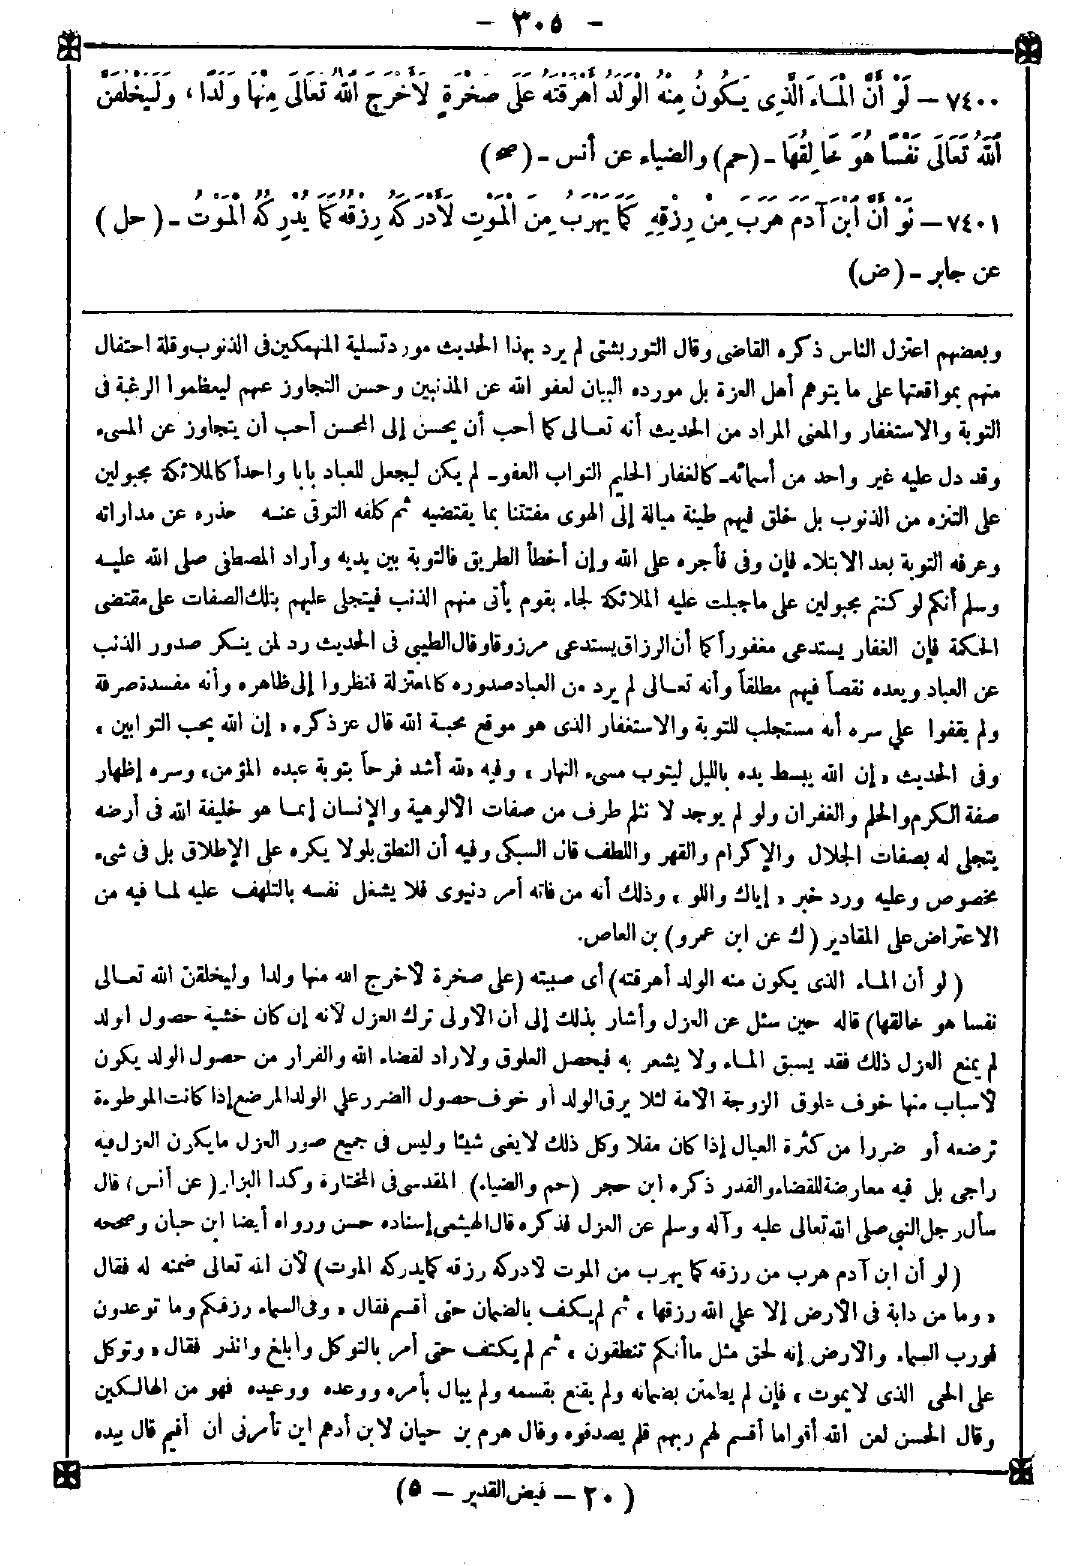 - ٣٠٥ -
٧٤٠٠ - لَوْ أَنَّ الْمَاءَ الَّذِى يَكُونُ مِنْهُ الْوَلَدُ أَهْرَقْتَهُ عَلَى صَخْرَةٍ لَأَخْرَجَ اللهُ تَعَالَى مِنْهَا وَلَدًا، وَلَيَخْلُقَنَّ
اللهُ تَعَالَى نَفْسًا هُوَ خَالِقُهَا - (حم) والضياء عن أنس - (صح)
٧٤٠١ - لَوْ أَنَّ ابْنَ آدَمَ هَرَبَ مِنْ رِزْقِهِ كَمَا يَهْرَبُ مِنَ الْمَوْتِ لَأَدْرَكَهُ رِزْقُهُ كَمَا يُدْرِكُهُ الْمَوْتُ - (حل)
عن جابر - (ض)
وبعضهم اعتزل الناس ذكره القاضى وقال التوربشتى لم يرد بهذا الحديث مورد تسلية المنهمكين فى الذنوب وقلة احتفال
منهم بمواقعتها على ما يتوهم أهل العزة بل مورده البيان لعفو الله عن المذنبين وحسن التجاوز عنهم ليعظموا الرغبة فى
التوبة والاستغفار والمعنى المراد من الحديث أنه تعالى كما أحب أن يحسن إلى المحسن أحب أن يتجاوز عن المسىء
وقد دل عليه غير واحد من أسمائه - كالغفار الحليم التواب العفو - لم يكن ليجعل للعباد بابا واحداً كالملائكة مجبولين
على التنزه من الذنوب بل خلق فيهم طينة ميالة إلى الهوى مفتتنا بما يقتضيه ثم كلفه التوقى عنه حذره عن مداراته
وعرفه التوبة بعد الابتلاء فإن وفى فأجره على الله وإن أخطأ الطريق فالتوبة بين يديه وأراد المصطفى صلى الله عليه
وسلم أنكم لو كنتم مجبولين على ماجبلت عليه الملائكة لجاء بقوم يأتى منهم الذنب فيتجلى عليهم بتلك الصفات على مقتضى
الحكمة فإن الغفار يستدعى مغفوراً كما أن الرزاق يستدعى مرزوقا وقال الطيبى فى الحديث رد لمن ينكر صدور الذنب
عن العباد ويعده نقصاً فيهم مطلقاً وأنه تعالى لم يرد من العباد صدوره كالمعتزلة فنظروا إلى ظاهره وأنه مفسدة صرفة
ولم يقفوا على سره أنه مستجلب للتوبة والاستغفار الذى هو موقع محبة الله قال عز ذكره «إن الله يحب التوابين»
وفى الحديث «إن الله يبسط يده بالليل ليتوب مسىء النهار» وفيه «لله أشد فرحاً بتوبة عبده المؤمن» وسره إظهار
صفة الكرم والحلم والغفران ولو لم يوجد لا نثلم طرف من صفات الألوهية والإنسان إنما هو خليفة الله فى أرضه
يتجلى له بصفات الجلال والإكرام والقهر واللطف قال السبكى وفيه أن النطق بلو لا يكره على الإطلاق بل فى شىء
مخصوص وعليه ورد خبر «إياك واللو» وذلك أنه من فاته أمر دنيوى فلا يشغل نفسه بالتلهف عليه لما فيه من
الاعتراض على المقادير (ك عن ابن عمرو) بن العاص.
(لو أن الماء الذى يكون منه الولد أهرقته) أى صببته (على صخرة لأخرج الله منها ولدا وليخلقن الله تعالى
نفسا هو خالقها) قاله حين سئل عن العزل وأشار بذلك إلى أن الأولى ترك العزل لأنه إن كان خشية حصول الولد
لم يمنع العزل ذلك فقد يسبق الماء ولا يشعر به فيحصل العلوق ولا راد لقضاء الله والفرار من حصول الولد يكون
لأسباب منها خوف علوق الزوجة الأمة لئلا يرق الولد أو خوف حصول الضرر على الولد المرضع إذا كانت الموطوءة
ترضعه أو ضررا من كثرة العيال إذا كان مقلا وكل ذلك لا يغنى شيئا وليس فى جميع صور العزل ما يكون العزل فيه
راجى بل فيه معارضة للقضاء والقدر ذكره ابن حجر (حم والضياء) المقدسى فى المختارة وكذا البزار (عن أنس) قال
سأل رجل النبى صلى الله تعالى عليه وآله وسلم عن العزل فذكره قال الهيثمى إسناده حسن ورواه أيضا ابن حبان وصححه
(لو أن ابن آدم هرب من رزقه كما يهرب من الموت لأدركه رزقه كما يدركه الموت) لأن الله تعالى ضمنه له فقال
«وما من دابة فى الأرض إلا على الله رزقها» ثم لم يكف بالضمان حتى أقسم فقال «وفى السماء رزقكم وما توعدون
فورب السماء والأرض إنه لحق مثل ما أنكم تنطقون» ثم لم يكتف حتى أمر بالتوكل وأبلغ وأنذر فقال «وتوكل
على الحى الذى لا يموت» فإن لم يطمئن بضمانه ولم يقنع بقسمه ولم يبال بأمره ووعده ووعيده فهو من الهالكين
وقال الحسن لعن الله أقواما أقسم لهم ربهم فلم يصدقوه وقال هرم بن حيان لابن أدهم اين تأمرنى أن أقيم قال بيده
(٢٠ - فيض القدير - ٥)